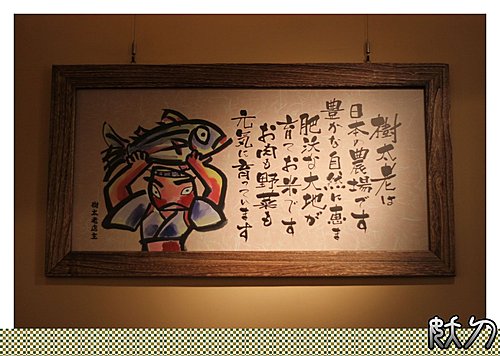 樹太老は
日本の農場です
豊かな自然に恵ま
肥沃な大地が
育てお米です
お肉も野菜も
元気に育っています
樹太老店主